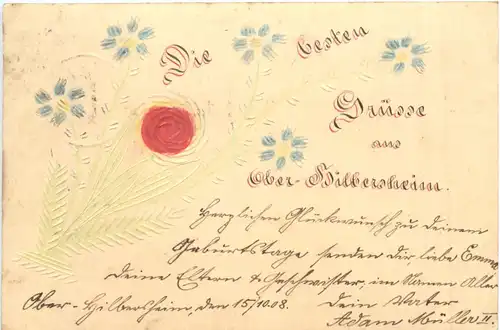 Die besten
Grüsse
aus
Ober-Hilbersheim.
Herzlichen Glückwunsch zu deinem
Geburtstage senden dir liebe Emma
deine Eltern & Geschwister, im Namen Aller
Ober-Hilbersheim, den 15/10.08. Dein Vater
Adam Müller II.